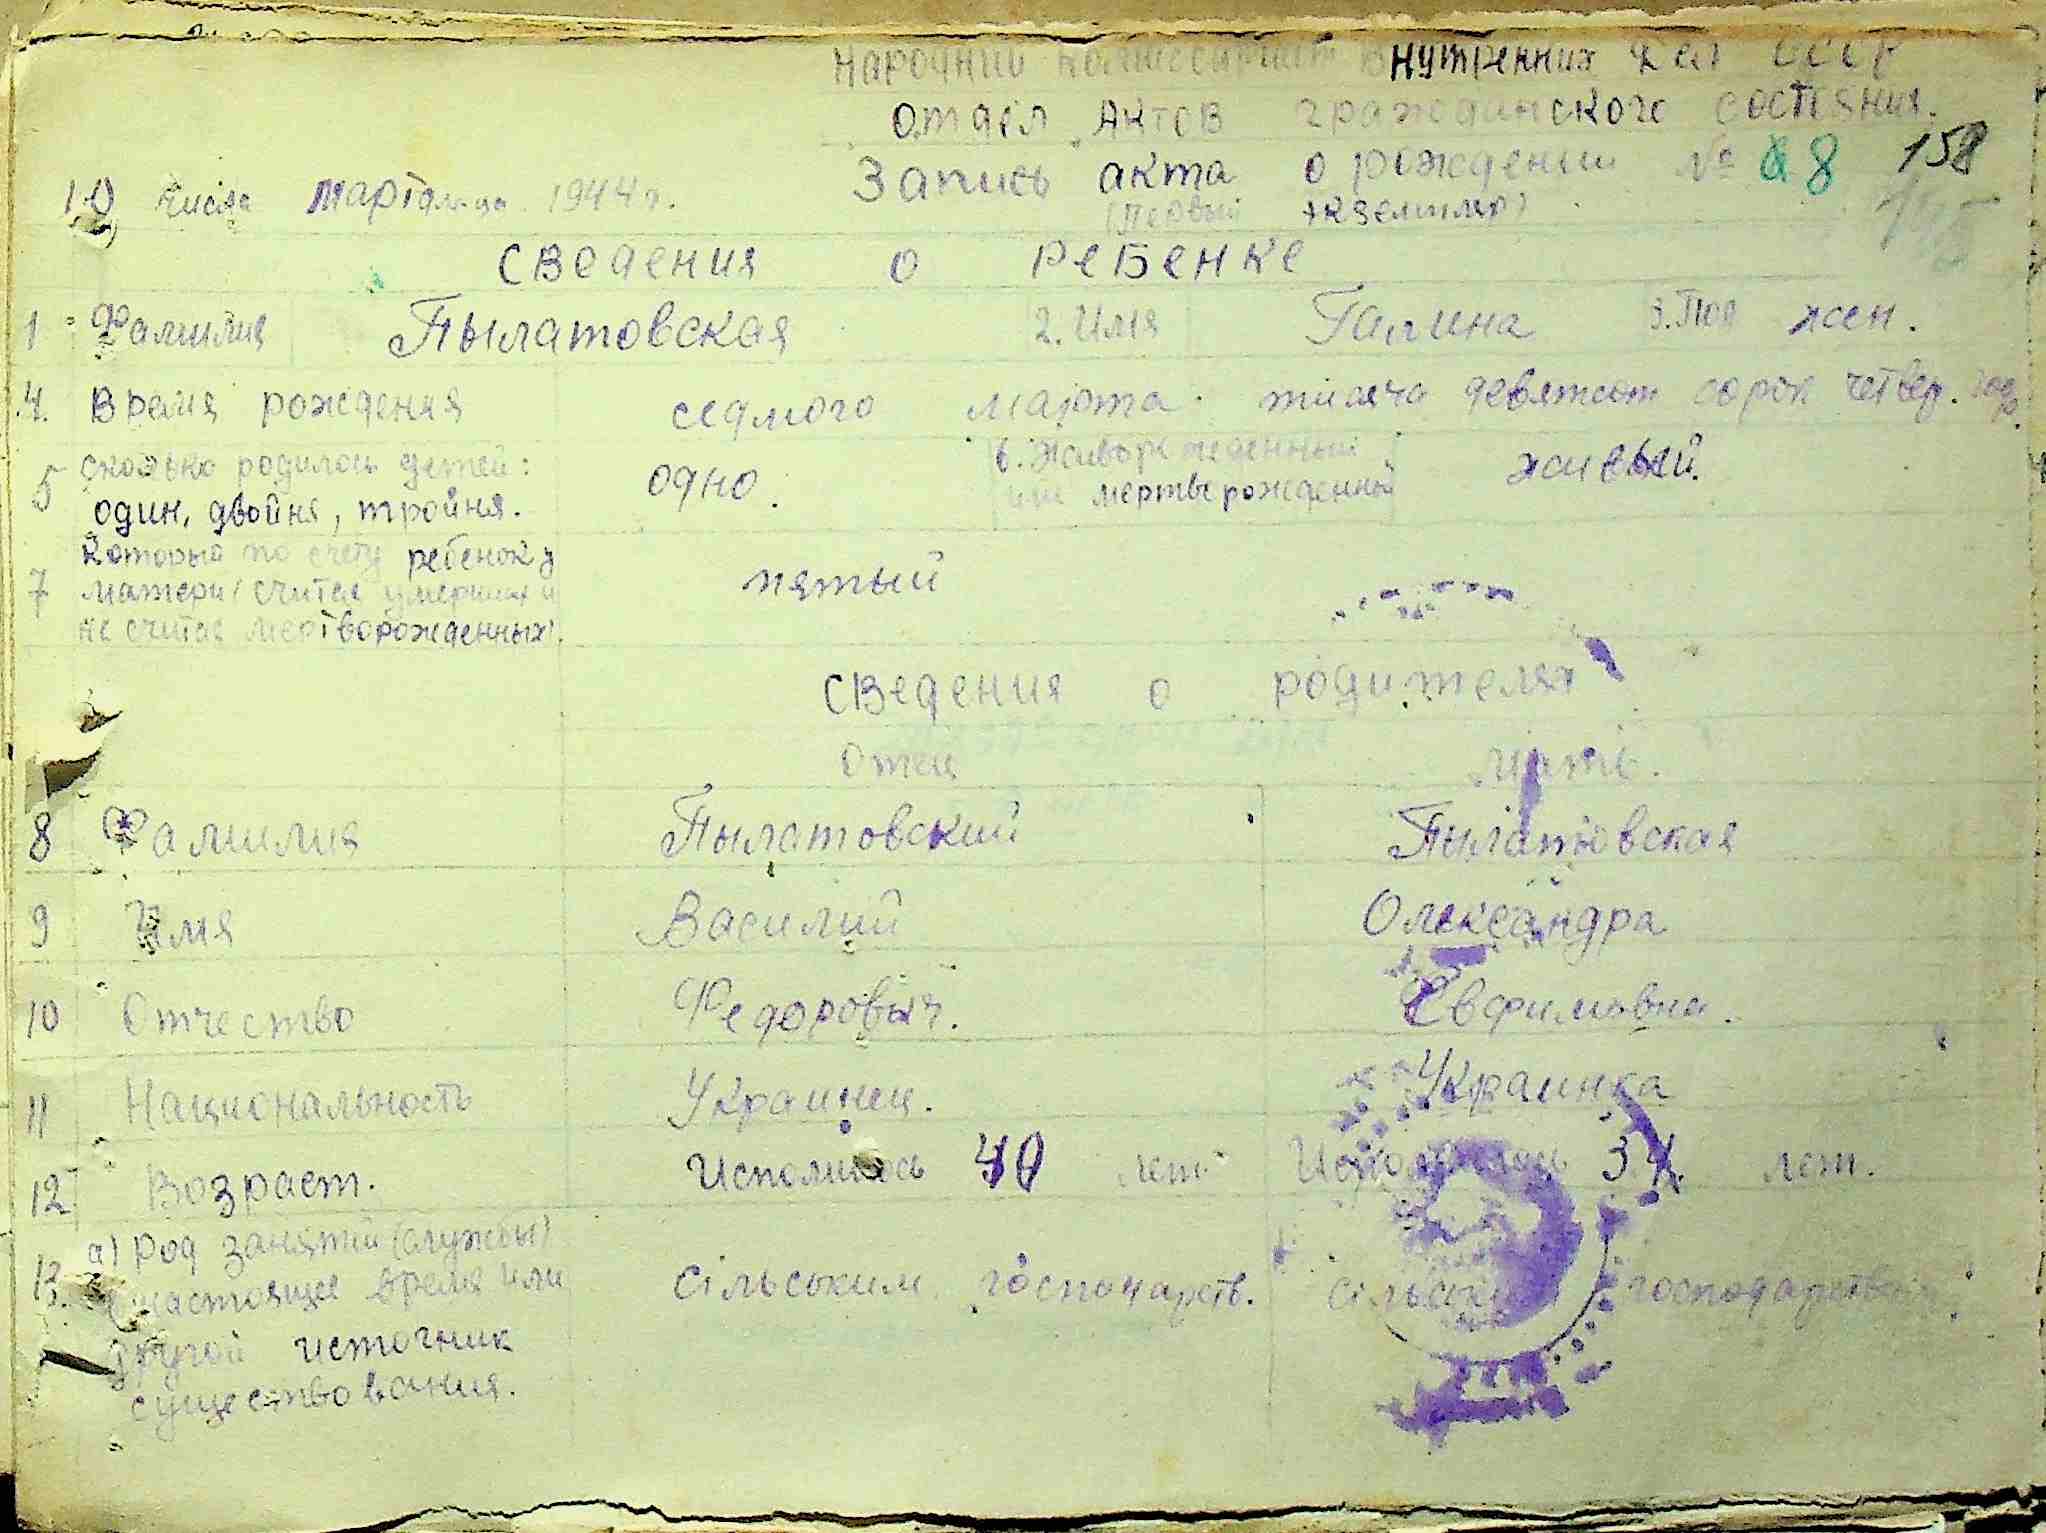 Народний комиссариат внутренних дел СССР
отдел Актов гражданского состояния.
Запись акта о рождении № 68 158
10 числа март м-ца 1944 г. (первый экземпляр)
сведения о ребенке
1 Фамилия Пылатовская 2. Имя Галина 3. Пол жен.
4. Время рождения седмого марта тисяча девятсот сорок четвер. года
5 сколько родилось детей: один, двойня, тройня. одно. 6. Живорожденный или мертворожденный живый.
7 который по счету ребенок у
матери (считая умерших и пятый
не считая мертворожденных).
сведения о родителях
отец мать.
8 Фамилия Пылатовский Пылатовская
9 Имя Василий Олександра
10 Отчество Федоровыч. Евфимовна.
11 Национальность Украинец. Украинка
12 Возраст. Исполнилось 40 лет Исполнилось 34 лет.
13. а) Род занятий (службы)
в настоящее время или сільським господарств. сільським господарством.
другой источник
существования.